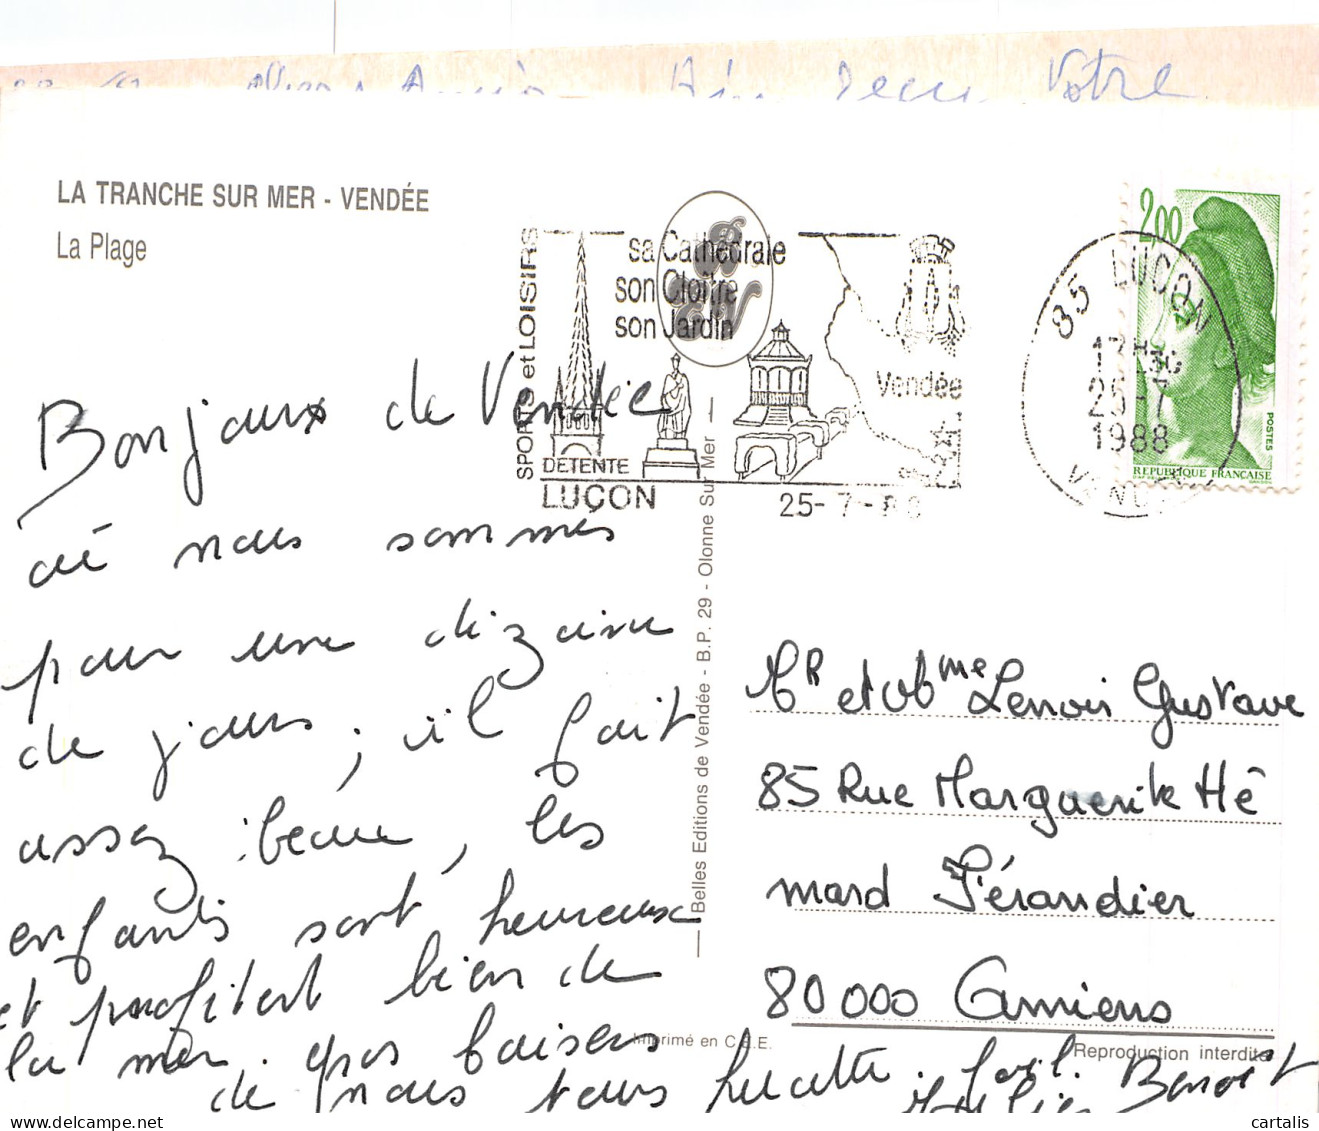 Votre
LA TRANCHE SUR MER - VENDÉE
La Plage
SPORTS et LOISIRS
sa Cathédrale
son Cloître
son Jardin
Vendée
DÉTENTE
LUÇON
25-7-88
85 LUÇON
17H30
25-7
1988
VENDÉE
2,00
POSTES
REPUBLIQUE FRANÇAISE
Bonjoux de Vendée
où nous sommes
pour une dizaine
de jours ; il fait
assez beau, les
enfants sont heureux
et profitent bien de
la mer. gros baisers
de nous tous Lucette. Joël. Benoît
Belles Editions de Vendée - B.P. 29 - Olonne Sur Mer
Mr et Mme Lenoir Gustave
85 Rue Marguerite Hé
mard Férandier
80000 Amiens
Imprimé en C.E.E.
Reproduction interdite
cartalis